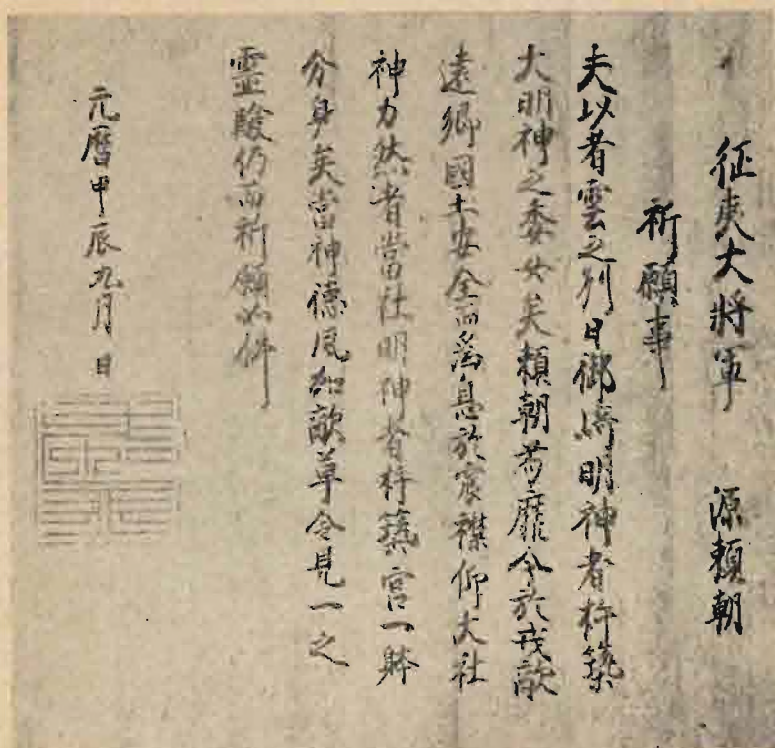 征夷大将軍 源頼朝
祈願事
夫以者雲之列日御崎明神者杵築
大明神之委女矣頼朝苟靡令於戎敵
遠郷國土安全而為息於宸襟仰大社
神力然者當社明神者杵築宮一躰
分身矣當神徳風如敵草令見一之
霊驗仍而祈願如件
元暦甲辰九月 日